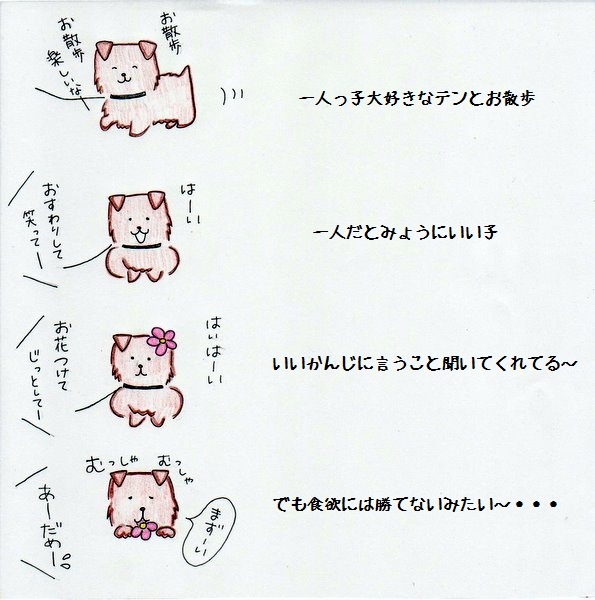 お散歩
お散歩
楽しいな
一人っ子大好きなテンとお散歩
はーい
おすわりして
笑ってー
一人だとみょうにいい子
はいはーい
お花つけて
じっとしてー
いいかんじに言うこと聞いてくれてる～
むっしゃ
むっしゃ
まずーい
あーだめー。。
でも食欲には勝てないみたい～・・・